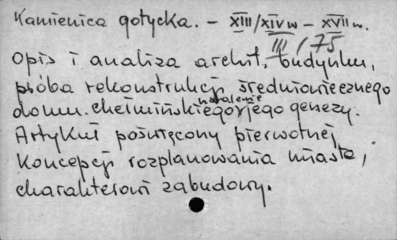 Kamienica gotycka. - XIII/XIV w - XVII w.
III/75
Opis i analiza archit. budynku,
próba rekonstrukcji średniowiecznego
domu chełmińskiego, ustalenie jego genezy.
Artykuł poświęcony pierwotnej
koncepcji rozplanowania miasta,
charakterowi zabudowy.